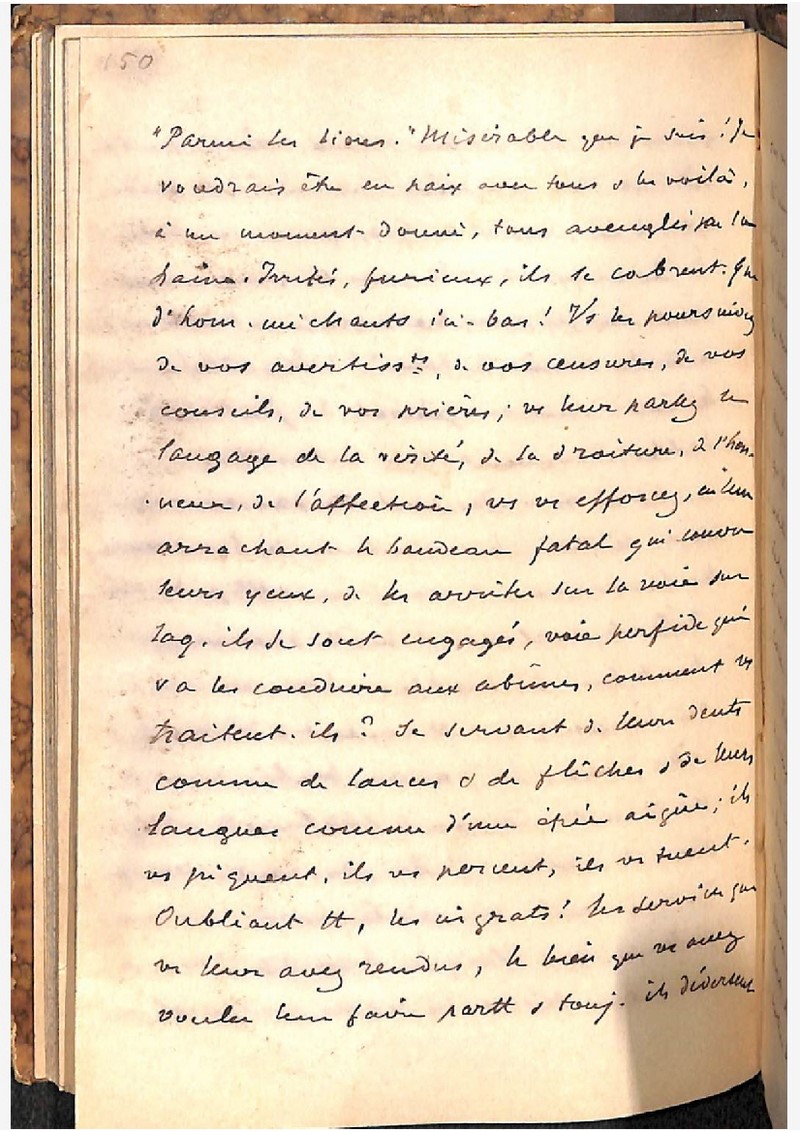 150
"Parmi les lions." Misérable que je suis ! Je
voudrais être en paix avec tous & les voilà,
à un moment donné, tous aveuglés par la
haine. Irrités, furieux, ils se cabrent. Que
d'hom. méchants ici-bas ! Vs les poursuivez
de vos avertissts, de vos censures, de vos
conseils, de vos prières ; vs leur parlez le
langage de la vérité, de la droiture, de l'hon-
neur, de l'affection ; vs vs efforcez, en leur
arrachant le bandeau fatal qui couvre
leurs yeux, de les arrêter sur la voie sur
laq. ils se sont engagés, voie perfide qui
va les conduire aux abîmes, comment vs
traitent-ils ? Se servant de leurs dents
comme de lances & de flèches & de leurs
langues comme d'une épée aigüe ; ils
vs piquent, ils vs percent, ils vs tuent.
Oubliant tt, les ingrats ! les services que
vs leur avez rendus, le bien que vs avez
voulu leur faire partt & touj. ils déversent